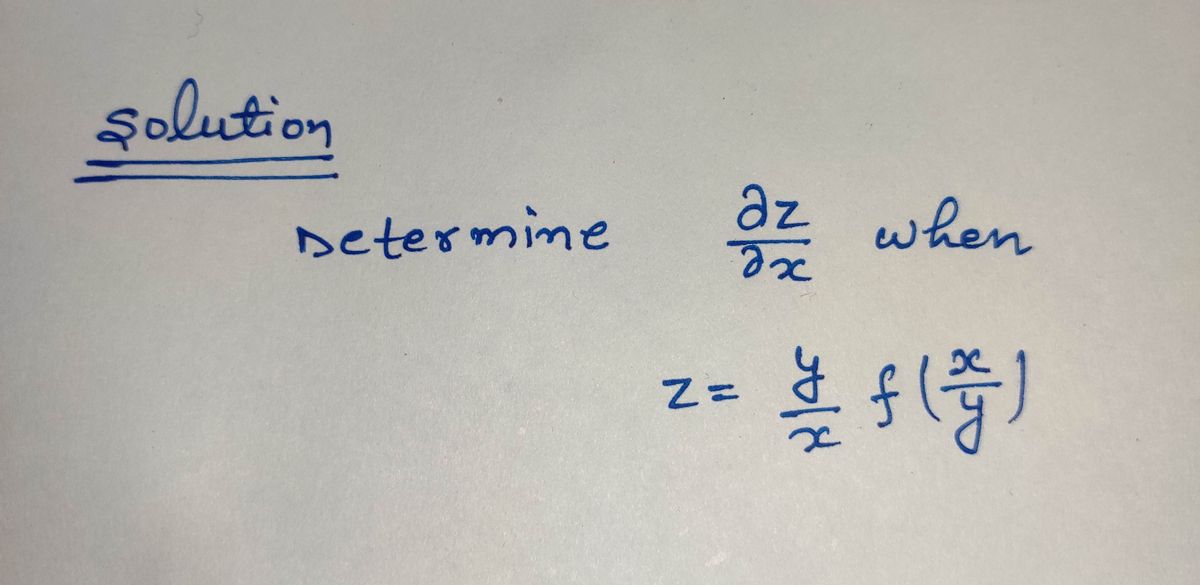 Solution
Determine ∂z/∂x when
z = y/x f(x/y)